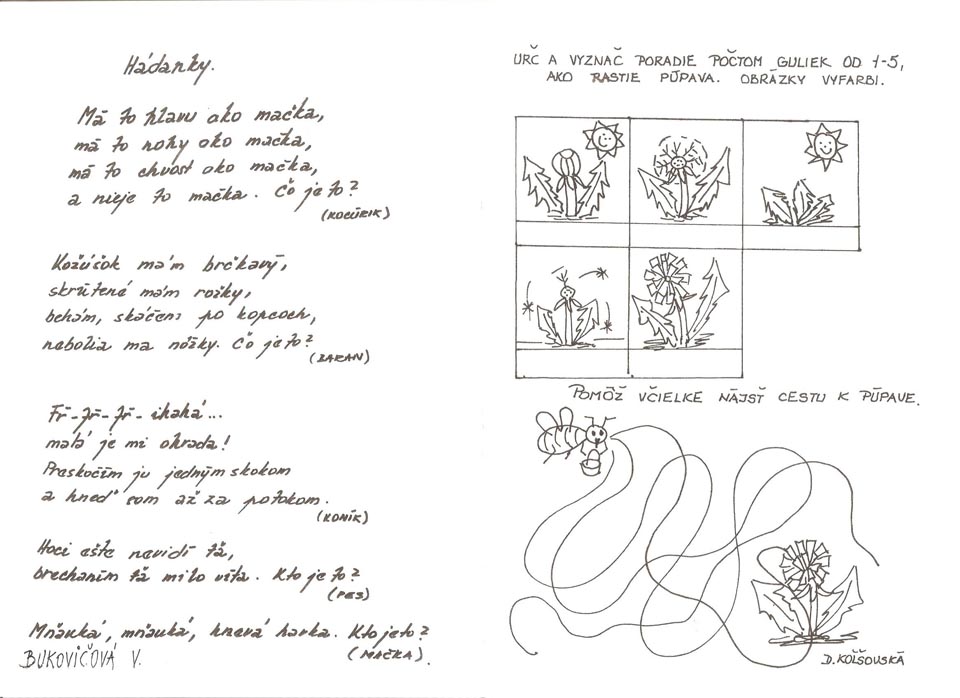 Hádanky.
Má to hlavu ako mačka,
má to nohy ako mačka,
má to chvost ako mačka,
a nieje to mačka. Čo je to?
(KOCÚRIK)
Kožúšok mám brčkavý,
skrútené mám rožky,
behám, skáčem po kopcoch,
nebolia ma nôžky. Čo je to?
(BARAN)
malá je mi ohrada!
Preskočím ju jedným skokom
a hneď som až za potokom.
(KONÍK)
Hoci ešte nevidí ťa,
brechaním ťa milo víta. Kto je to?
(PES)
Mňauká, mňauká, havká. Kto je to?
(MAČKA).
BUKOVIČOVÁ V.
URČ A VYZNAČ PORADIE POČTOM GULIEK OD 1-5,
AKO RASTIE PÚPAVA. OBRÁZKY VYFARBI.
POMÔŽ VČIELKE NÁJSŤ CESTU K PÚPAVE.
D. KOLŠOVSKÁ